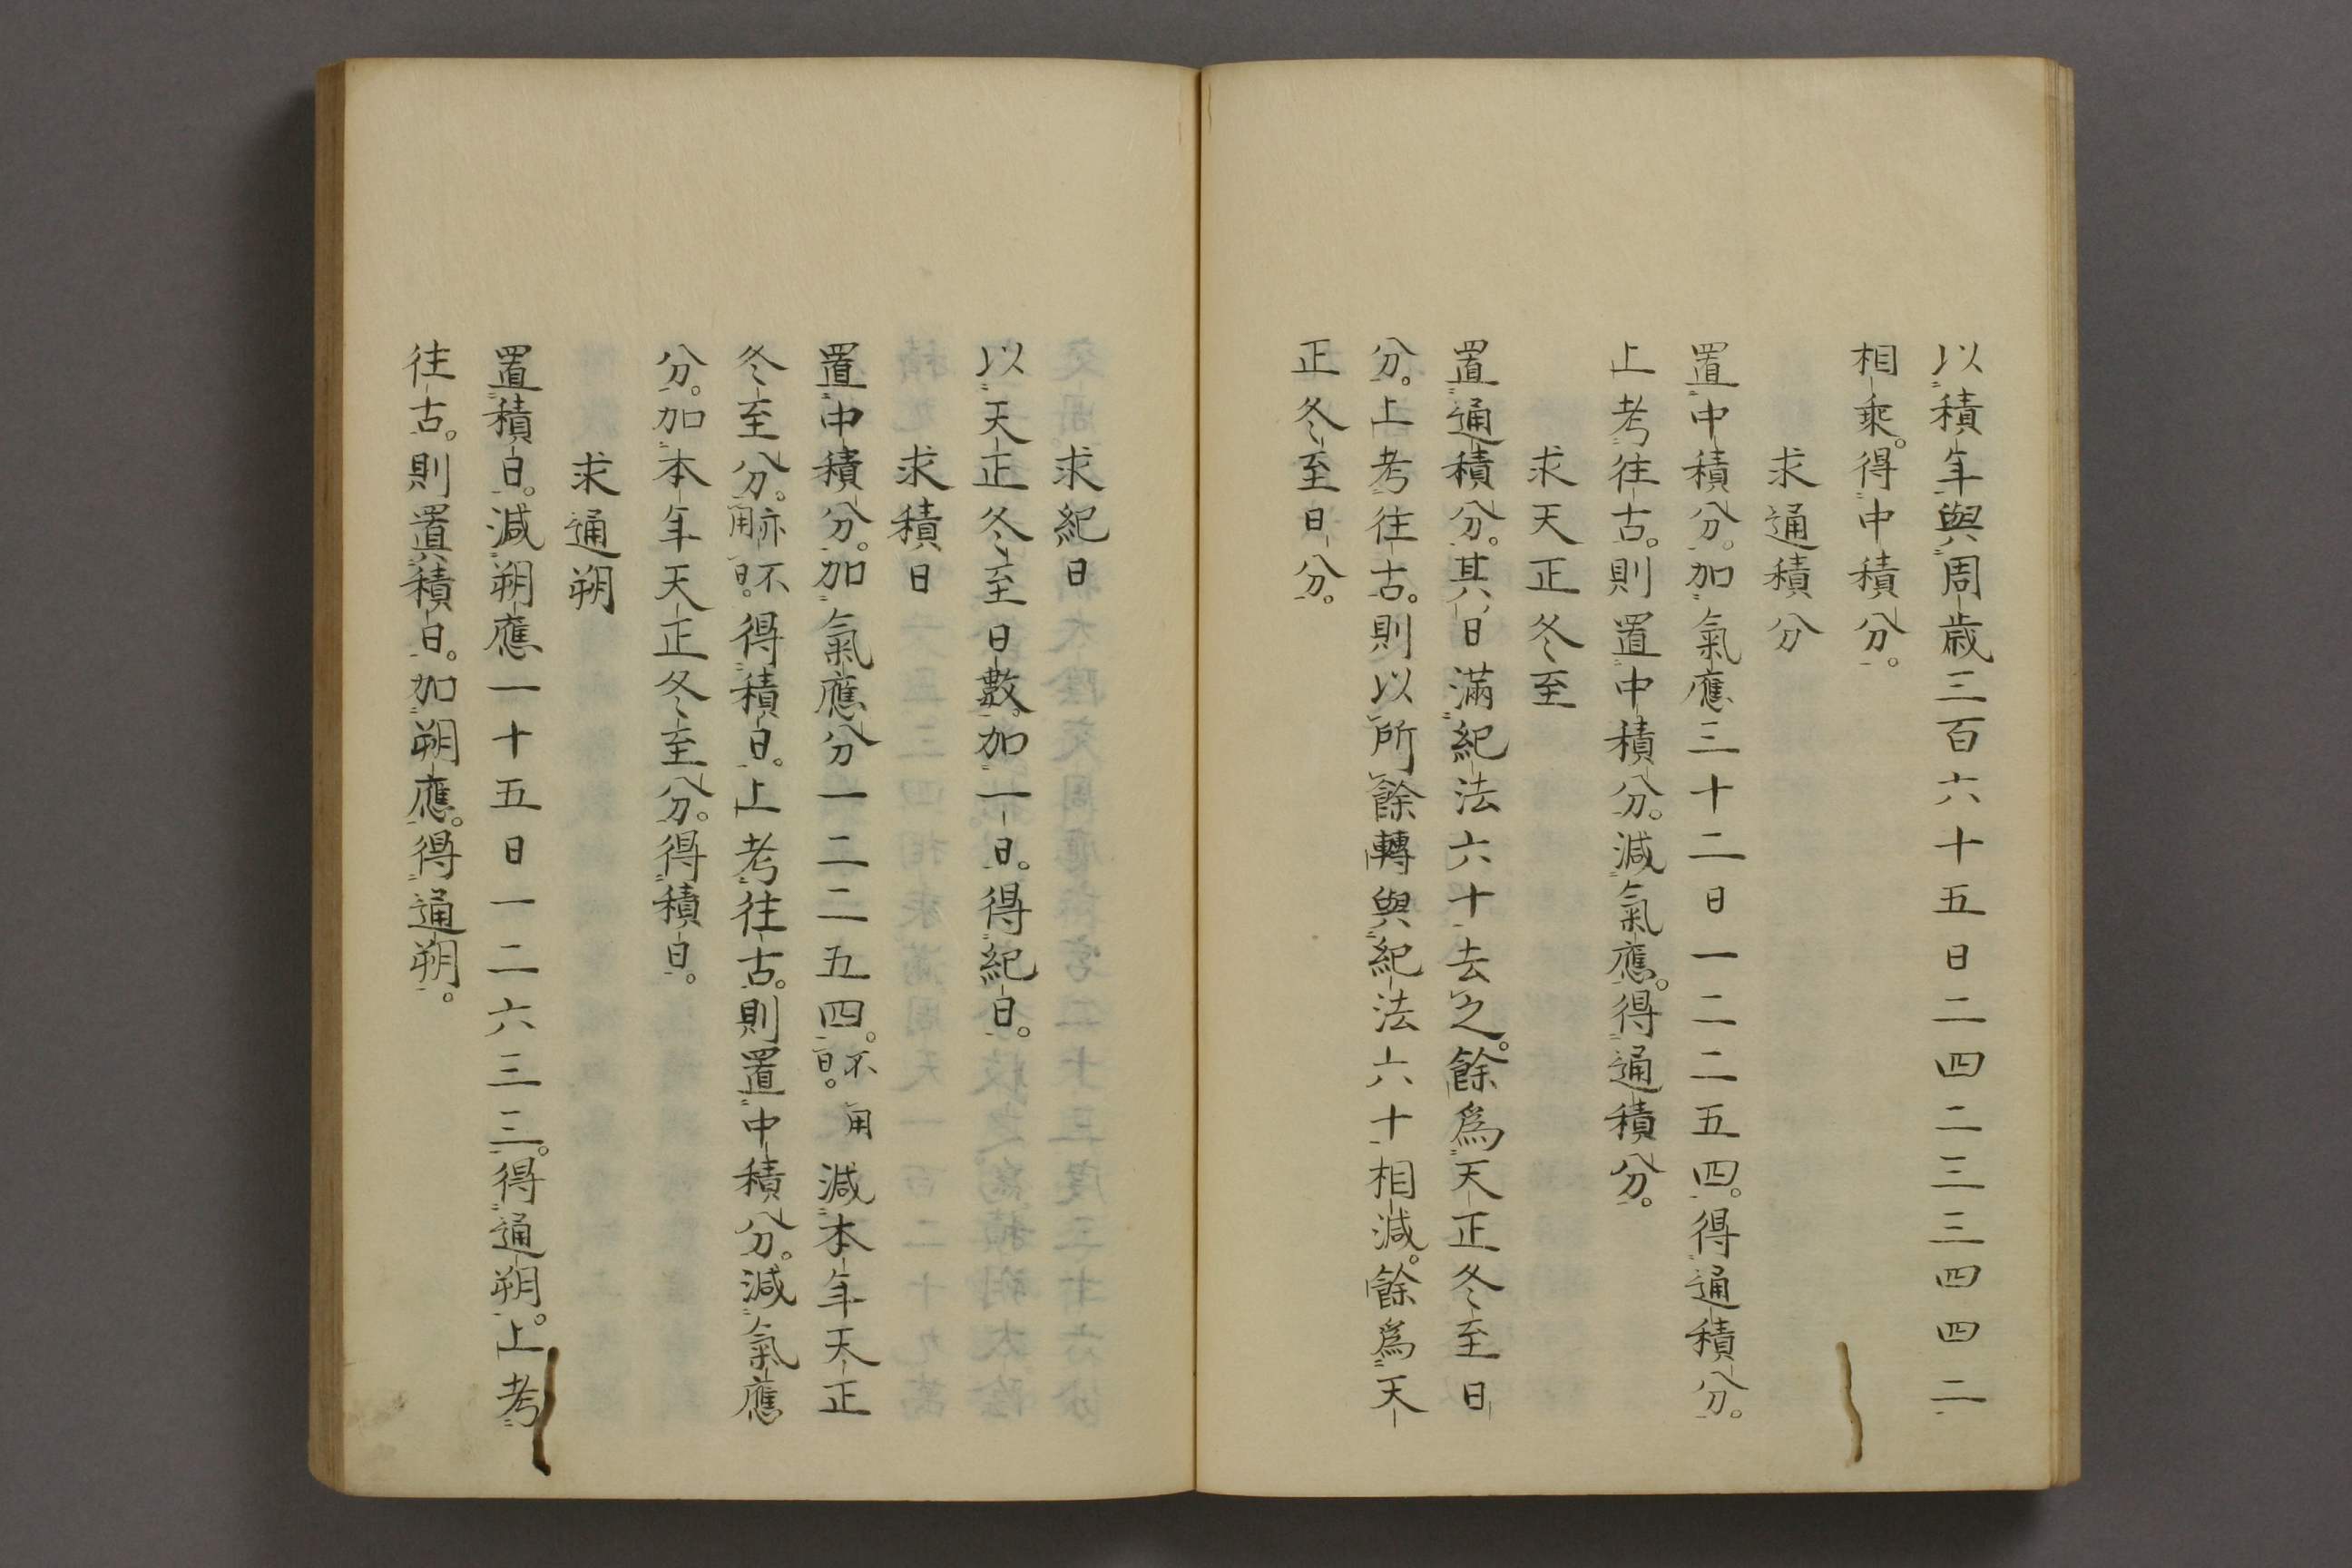 以積年與周歳三百六十五日二四二三三四四二
相乘。得中積分。
求通積分
置中積分。加氣應三十二日一二二五四。得通積分。
上考往古。則置中積分。減氣應。得通積分。
求天正冬至
置通積分。其日滿紀法六十去之。餘爲天正冬至日
分。上考往古。則以所餘轉與紀法六十相減。餘爲天
正冬至日分。
求紀日
以天正冬至日數。加一日。得紀日。
求積日
置中積分。加氣應分一二二五四。不用日。減本年天正
冬至分。亦不用日。得積日。上考往古。則置中積分。減氣應
分。加本年天正冬至分。得積日。
求通朔
置積日。減朔應一十五日一二六三三。得通朔。上考
往古。則置積日。加朔應。得通朔。